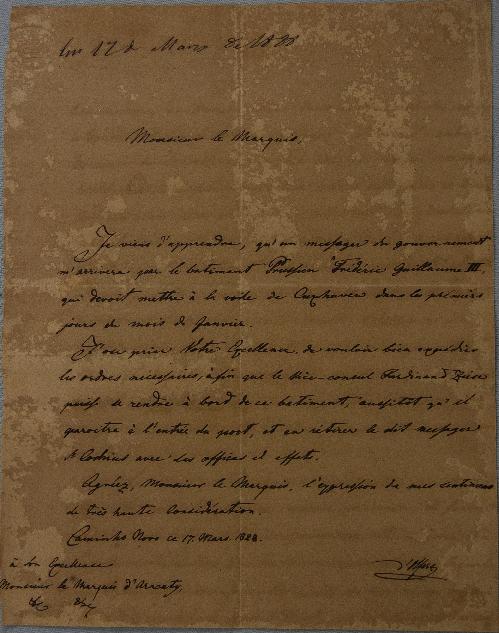 17 de Mars de 1828
Monsieur le Marquis,
Je viens d'apprendre, qu'un messager du gouvernement
m'arrivera par le batiment Prussien "Frédéric Guillaume III,
qui devoit mettre à la voile de Cuxhaven dans les premiers
jours du mois de Janvier.
J'ose prier Votre Excellence, de vouloir bien expédier
les ordres necessaires, àfin que le Vice-consul Ferdinand
puisse se rendre à bord de ce batiment, aussitot qu'il
paroitre à l'entrée du port, et en retirer le dit messager
avec ses offices et effets.
Agréez, Monsieur le Marquis, l'expression de mes sentimens
de très haute Considération.
Caminho Novo ce 17. Mars. 1828.
à Son Excellence
Monsieur le Marquis d'Aracaty,